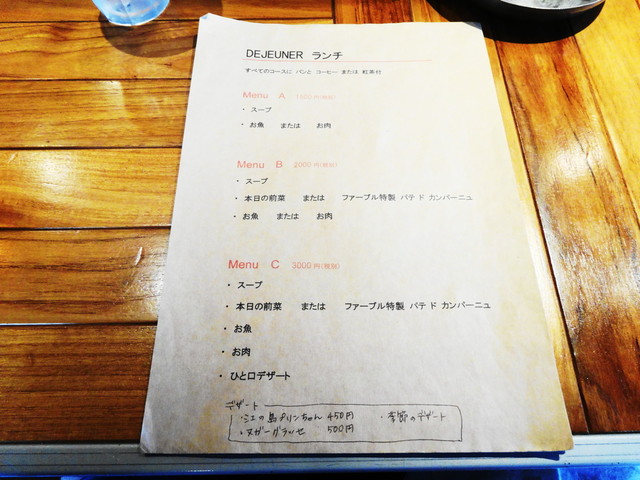 DEJEUNER ランチ
すべてのコースに パンと コーヒー または 紅茶付
Menu A 1500円(税抜)
・ スープ
・ お魚 または お肉
Menu B 2000円(税抜)
・ スープ
・ 本日の前菜 または ファーブル特製 パテ ド カンパーニュ
・ お魚 または お肉
Menu C 3000円(税抜)
・ スープ
・ 本日の前菜 または ファーブル特製 パテ ド カンパーニュ
・ お魚
・ お肉
・ ひと口デザート
デザート
・江の島プリンちゃん 450円 ・季節のデザート
・ヌガーグラッセ 500円